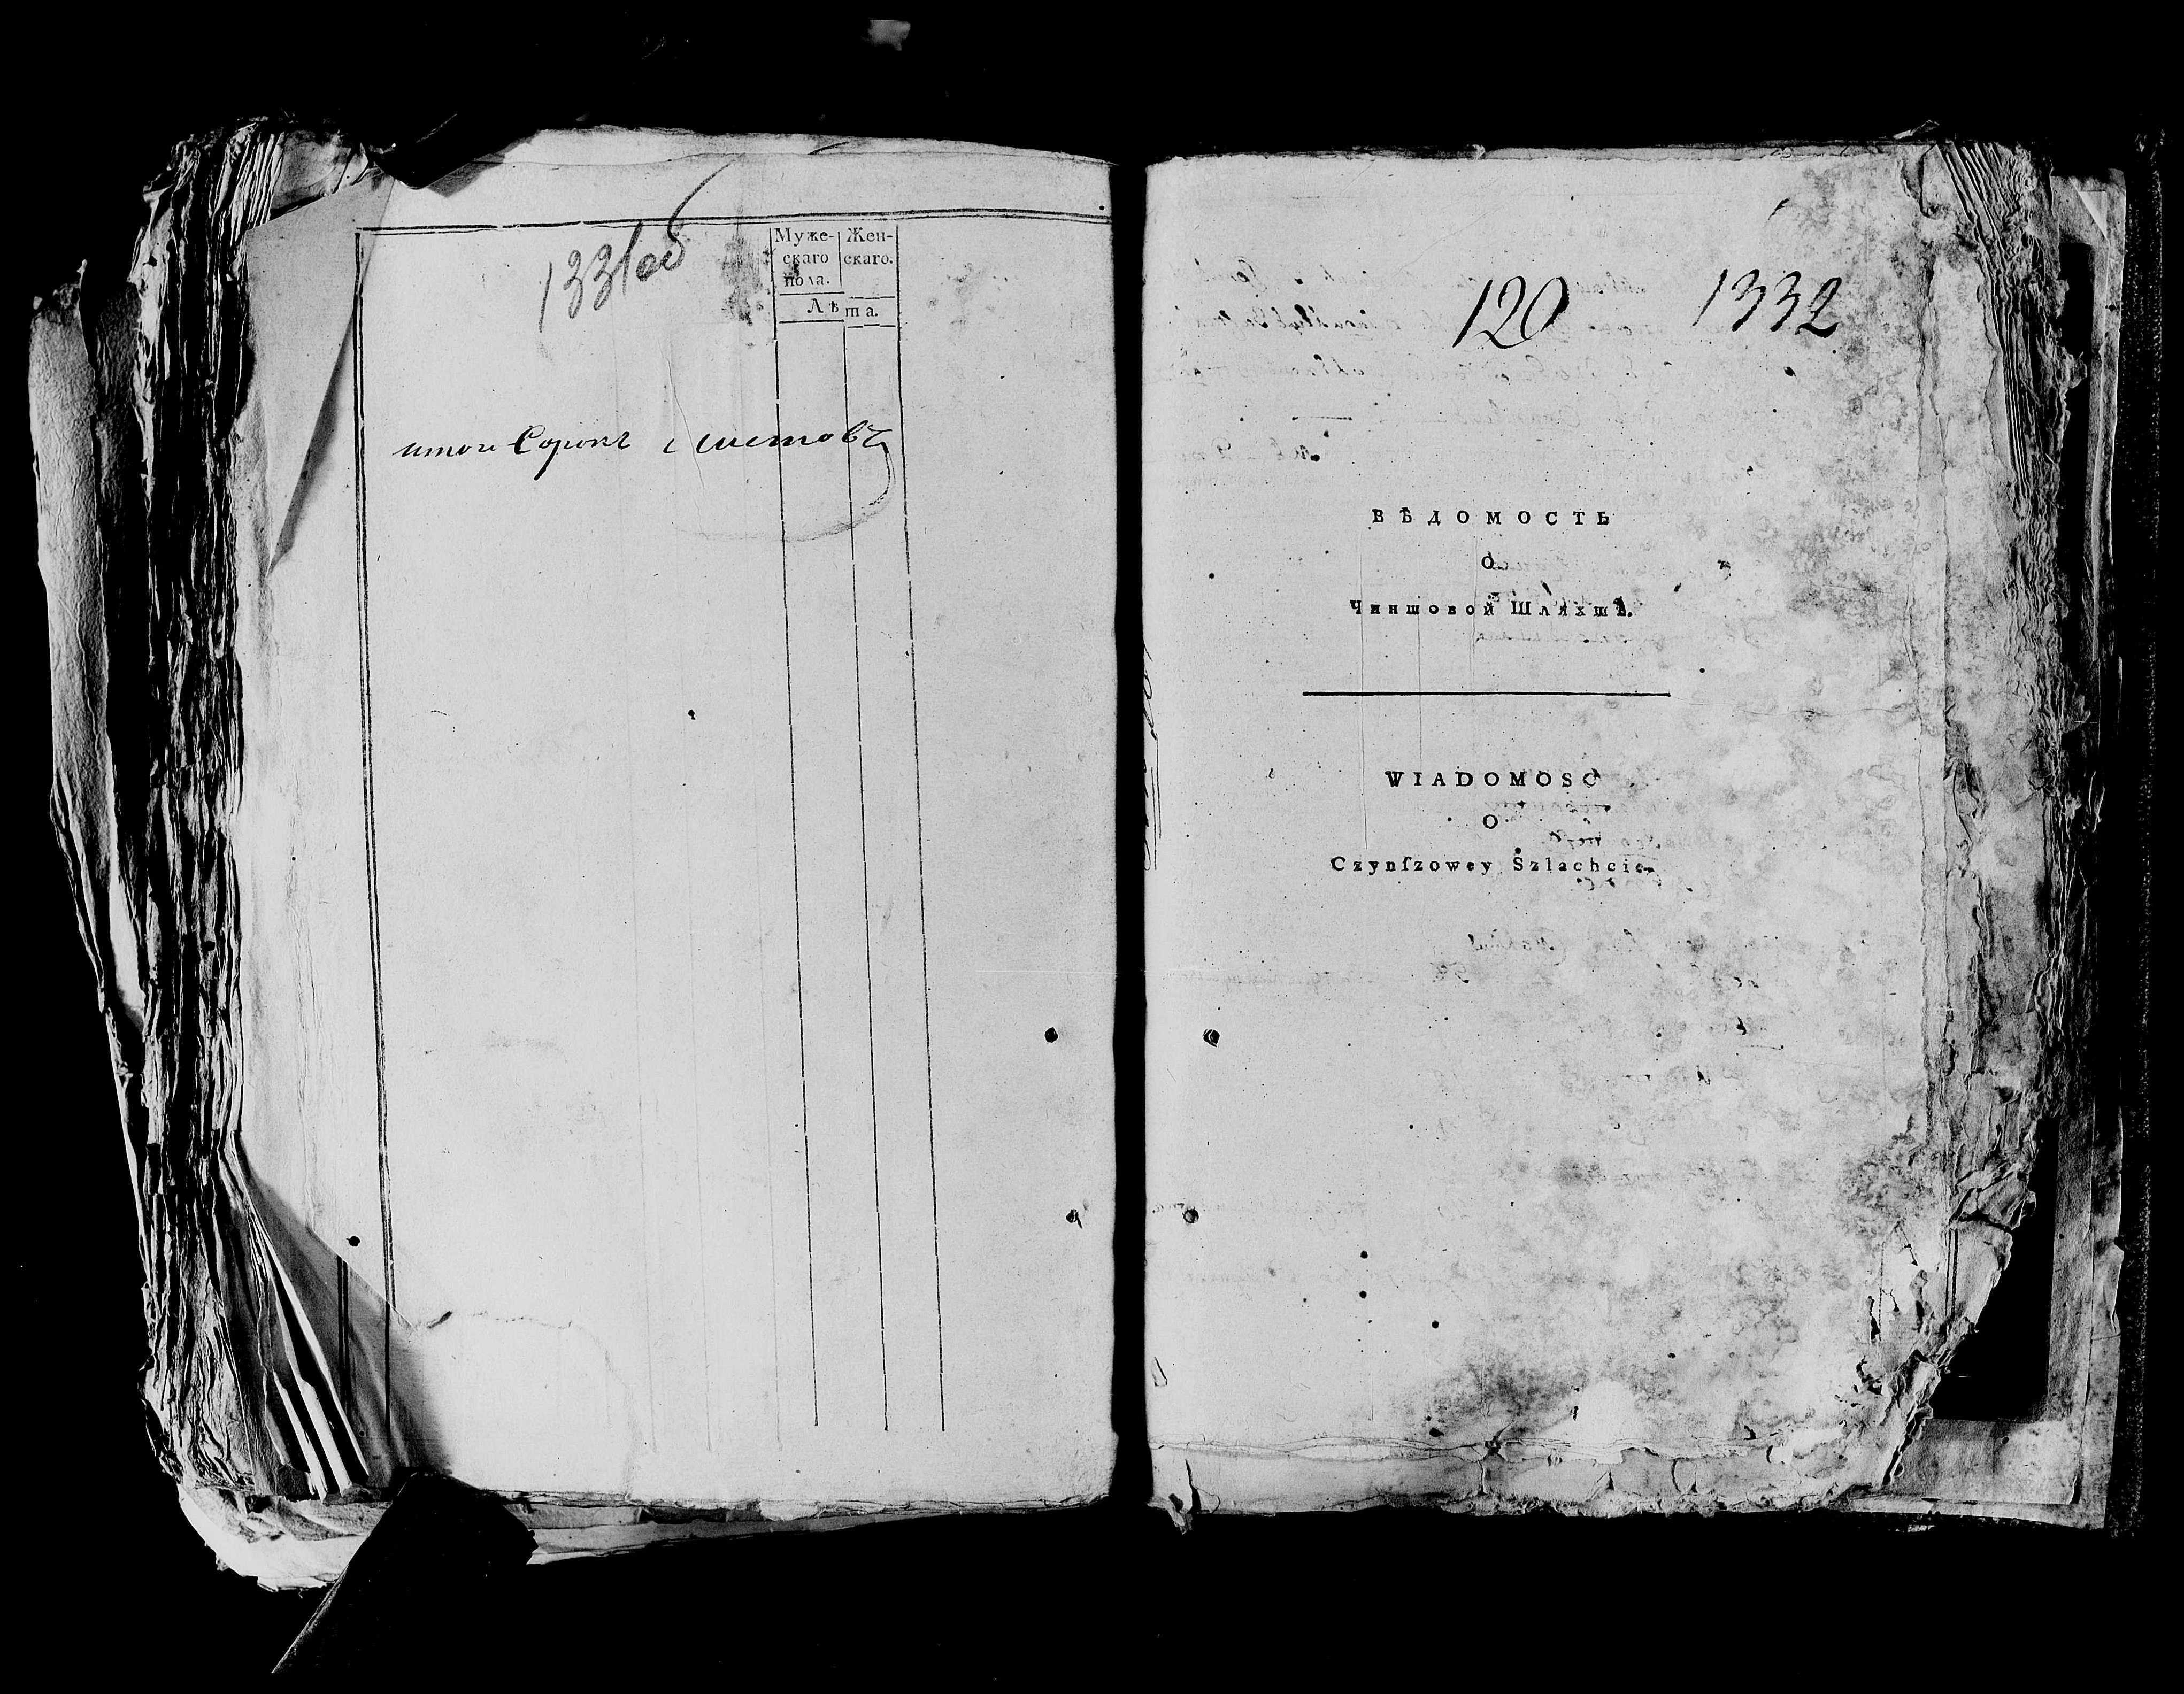 1331об
Муже- Жен-
скаго скаго.
пола.
Лѣта.
итои Сорокъ листовъ
120 1332
ВѢДОМОСТЬ
О
Чиншовой Шляхтѣ.
WIADOMOSC
O
Czynſzowey Szlachcie